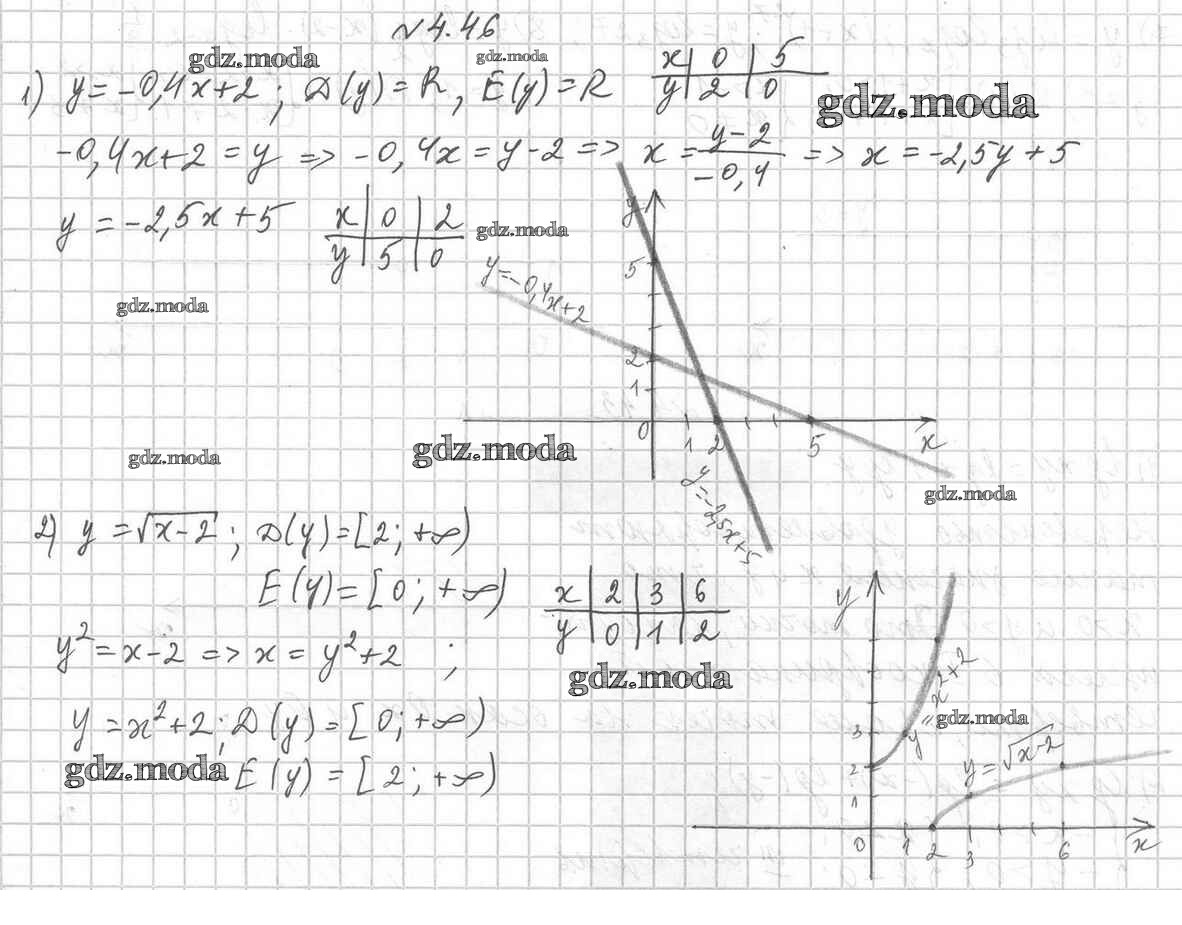 №4.46
gdz.moda gdz.moda
1) y = -0,4x+2 ; D(y) = R, E(y) = R
x | 0 | 5
y | 2 | 0
gdz.moda
-0,4x+2 = y => -0,4x = y-2 => x = (y-2)/(-0,4) => x = -2,5y+5
y = -2,5x+5
x | 0 | 2
y | 5 | 0
gdz.moda
gdz.moda
y
5
y=-0,4x+2
2
1
0 1 2 5 x
y=-2,5x+5
gdz.moda
gdz.moda
gdz.moda
2) y = √(x-2) ; D(y) = [2; +∞)
E(y) = [0; +∞)
x | 2 | 3 | 6
y | 0 | 1 | 2
y² = x-2 => x = y²+2 ;
gdz.moda
y = x²+2; D(y) = [0; +∞)
gdz.moda
E(y) = [2; +∞)
y
y=x²+2
gdz.moda
3
2
1
y=√(x-2)
0 1 2 3 6 x